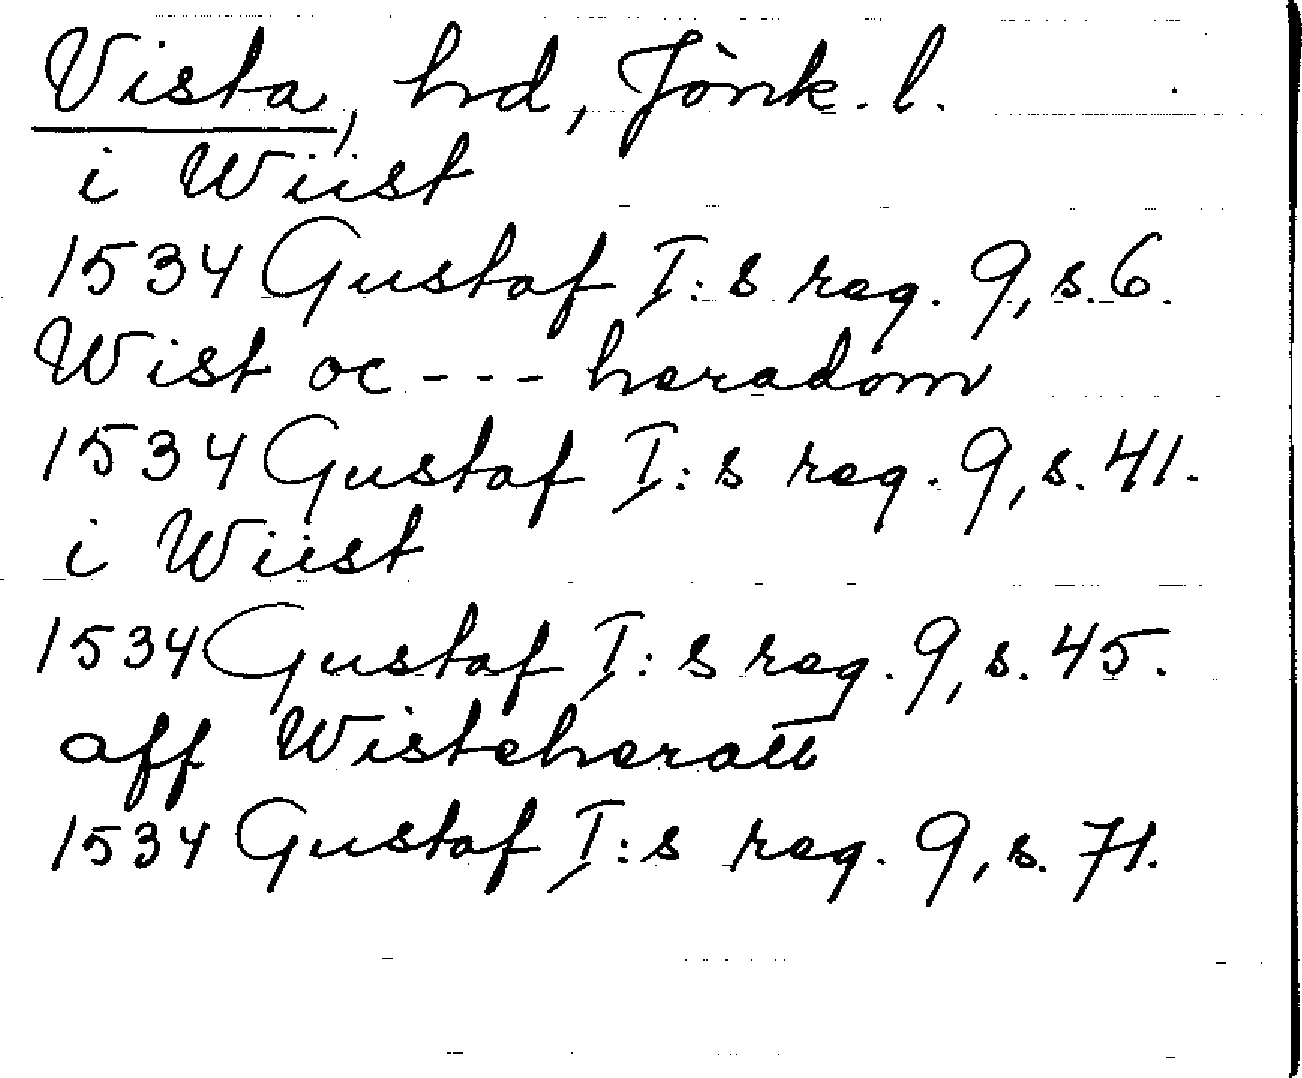 Vista, hd, Jönk. l.
i Wiist
1534 Gustaf I:s reg. 9, s. 6.
Wist oc --- heradom
1534 Gustaf I:s reg. 9, s. 41.
i Wiist
1534 Gustaf I:s reg. 9, s. 45.
aff Wisteherat̅t̅
1534 Gustaf I:s reg. 9, s. 71.